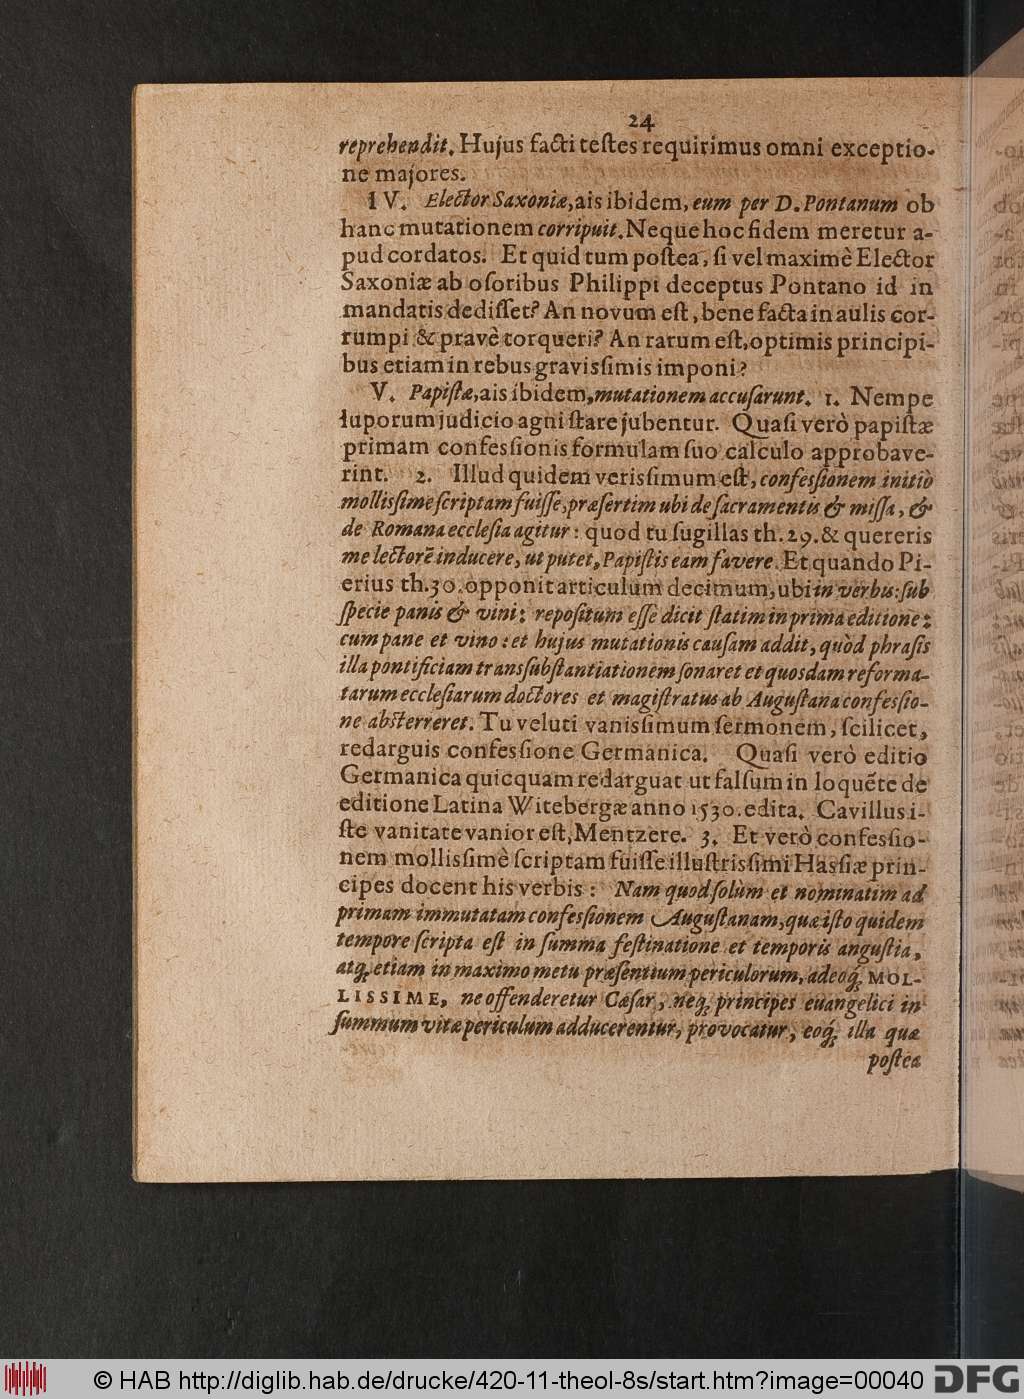 24
reprehendit. Hujus facti teſtes requirimus omni exceptio-
ne majores.
IV. Elector Saxoniæ, ais ibidem, eum per D. Pontanum ob
hanc mutationem corripuit. Neque hoc fidem meretur a-
pud cordatos. Et quid tum poſtea, ſi vel maximè Elector
Saxoniæ ab oſoribus Philippi deceptus Pontano id in
mandatis dediſſet? An novum eſt, bene facta in aulis cor-
rumpi & pravè torqueri? An rarum eſt, optimis principi-
bus etiam in rebus gravisſimis imponi?
V. Papiſtæ, ais ibidem, mutationem accuſarunt. 1. Nempe
luporum judicio agni ſtare jubentur. Quaſi verò papiſtæ
primam confesſionis formulam ſuo calculo approbave-
rint. 2. Illud quidem verisſimum eſt, confesſionem initiò
mollisſime ſcriptam fuiſſe, præſertim ubi de ſacramentis & miſſa, &
de Romana eccleſia agitur: quod tu ſugillas th. 29. & quereris
me lectorē inducere, ut putet, Papiſtis eam favere. Et quando Pi-
erius th. 30. opponit articulum decimum, ubi in verbis: ſub
ſpecie panis & vini: repoſitum eſſe dicit ſtatim in prima editione:
cum pane et vino: et hujus mutationis cauſam addit, quòd phraſis
illa pontificiam transſubſtantiationem ſonaret et quosdam reforma-
tarum eccleſiarum doctores et magiſtratus ab Auguſtana confesſio-
ne abſterreret. Tu veluti vanisſimum ſermonem, ſcilicet,
redarguis confesſione Germanica. Quaſi verò editio
Germanica quicquam redarguat ut falſum in loquēte de
editione Latina Witebergæ anno 1530. edita. Cavillus i-
ſte vanitate vanior eſt, Mentzere. 3. Et verò confesſio-
nem mollisſimè ſcriptam fuiſſe illuſtrisſimi Hasſiæ prin-
cipes docent his verbis: Nam quod ſolùm et nominatim ad
primam immutatam confesſionem Auguſtanam, quæ iſto quidem
tempore ſcripta eſt in ſumma feſtinatione et temporis anguſtia,
atq; etiam in maximo metu præſentium periculorum, adeoq; MOL-
LISSIME, ne offenderetur Cæſar, neq; principes euangelici in
ſummum vitæ periculum adducerentur, provocatur, eoq; illa quæ
poſtea
© HAB http://diglib.hab.de/drucke/420-11-theol-8s/start.htm?image=00040
DFG